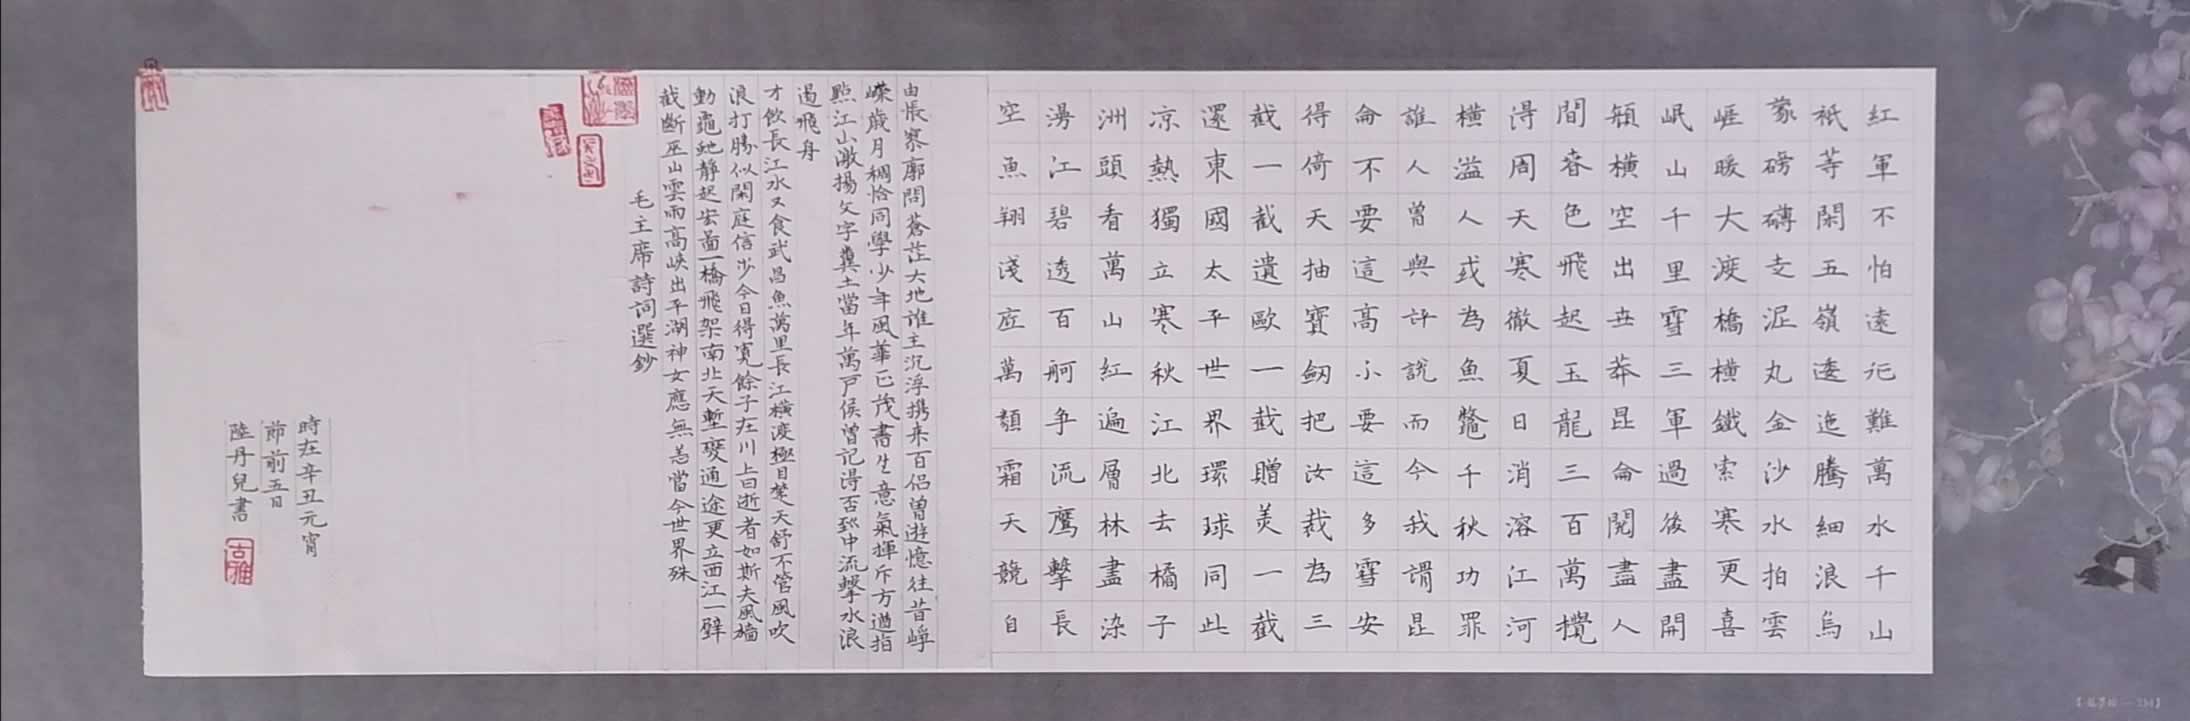 紅軍不怕遠征難萬水千山
祇等閑五嶺逶迤騰細浪烏
蒙磅礴走泥丸金沙水拍雲
崕暖大渡橋橫鐵索寒更喜
岷山千里雪三軍過後盡開
顏橫空出世莽昆侖閱盡人
間春色飛起玉龍三百萬攪
得周天寒徹夏日消溶江河
橫溢人或為魚鱉千秋功罪
誰人曾與評說而今我謂昆
侖不要這高不要這多雪安
得倚天抽寶劍把汝裁為三
截一截遺歐一截贈美一截
還東國太平世界環球同此
涼熱獨立寒秋江北去橘子
洲頭看萬山紅遍層林盡染
漫江碧透百舸爭流鷹擊長
空魚翔淺底萬類霜天競自
由悵寥廓問蒼茫大地誰主沉浮攜来百侶曾遊憶往昔崢
嶸歲月稠恰同學少年風華正茂書生意氣揮斥方遒指
點江山激揚文字糞土當年萬戶侯曾記得否到中流擊水浪
遏飛舟
才飲長江水又食武昌魚萬里長江橫渡極目楚天舒不管風吹
浪打勝似閑庭信步今日得寬餘子在川上曰逝者如斯夫風檣
動龜蛇靜起宏圖一橋飛架南北天塹變通途更立西江一壁
截斷巫山雲雨高峽出平湖神女應無恙當今世界殊
毛主席詩詞選鈔
時在辛丑元宵
節前五日
陸丹兒書
古雅